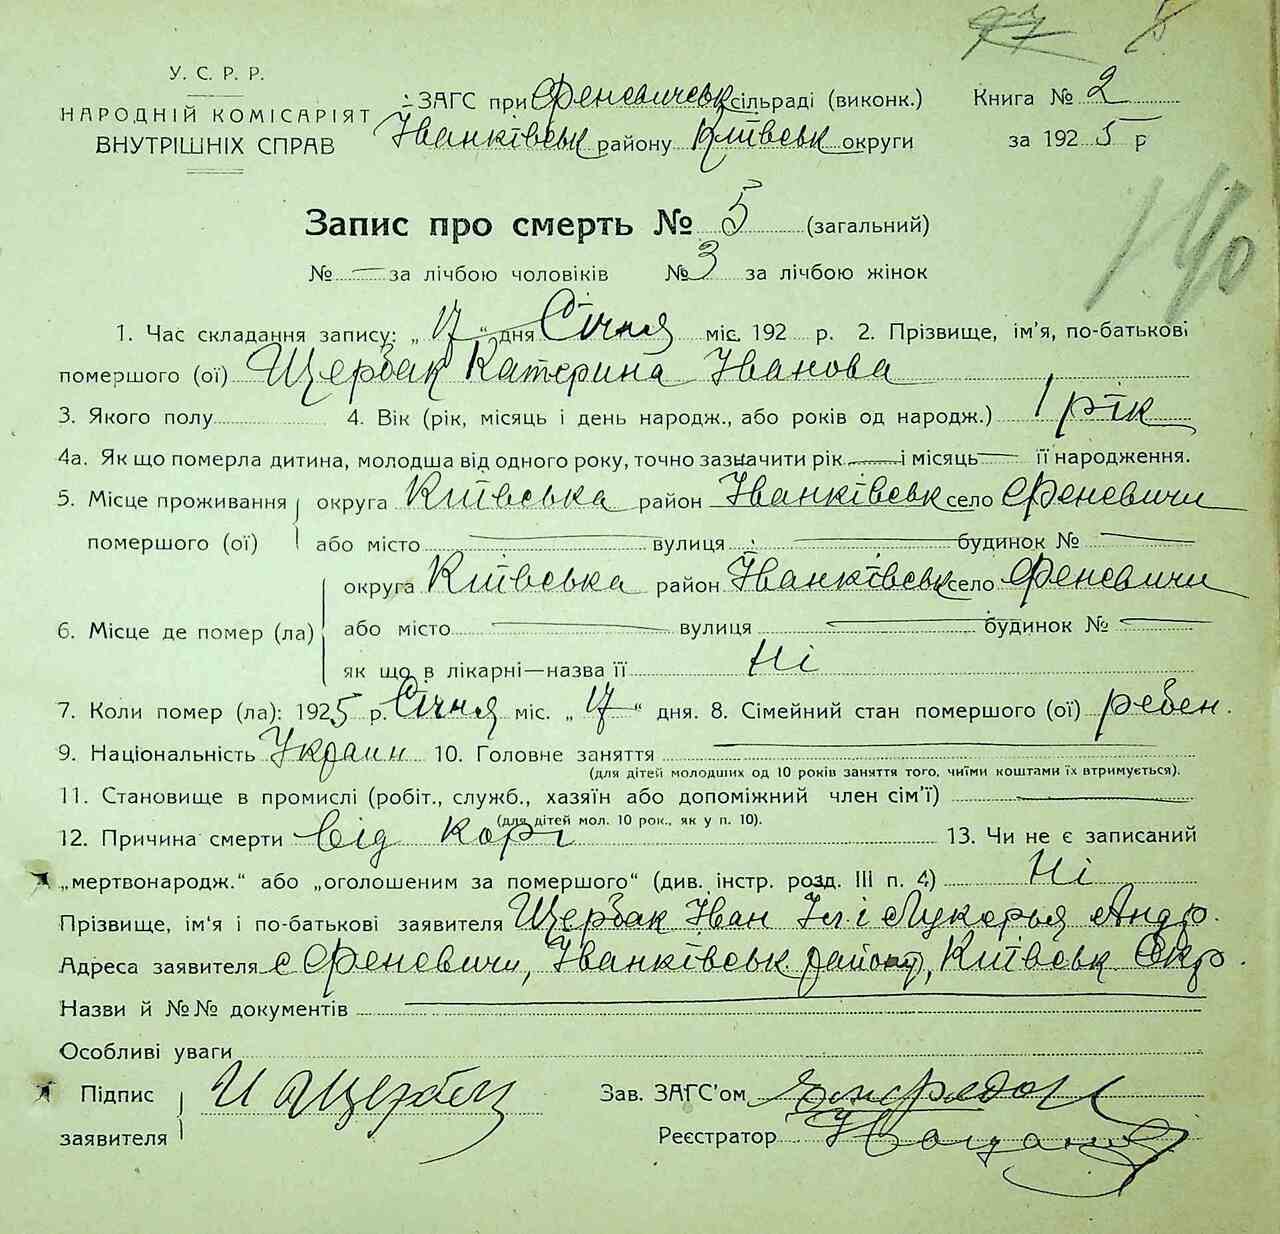 97
У. С. Р. Р.
НАРОДНІЙ КОМІСАРІЯТ
ВНУТРІШНІХ СПРАВ
ЗАГС при Феневичськ сільраді (виконк.)
Іванківськ району Київськ округи
Книга № 2
за 1925 р
Запис про смерть № 5 (загальний)
№ — за лічбою чоловіків № 3 за лічбою жінок
190
1. Час складання запису: „17“ дня Січня міс. 192 р. 2. Прізвище, ім'я, по-батькові
помершого (ої) Щербак Катерина Іванова
3. Якого полу 4. Вік (рік, місяць і день народж., або років од народж.) 1 рік
4а. Як що померла дитина, молодша від одного року, точно зазначити рік — і місяць — її народження.
5. Місце проживання округа Київська район Іванківськ село Феневичи
помершого (ої) або місто — вулиця — будинок № —
округа Київська район Іванківськ село Феневичи
6. Місце де помер (ла) або місто — вулиця — будинок № —
як що в лікарні—назва її Ні
7. Коли помер (ла): 1925 р. Січня міс. „17“ дня. 8. Сімейний стан помершого (ої) ребен.
9. Національність Украин 10. Головне заняття —
(для дітей молодших од 10 років заняття того, чиїми коштами їх втримується).
11. Становище в промислі (робіт., служб., хазяїн або допоміжний член сім'ї) —
(для дітей мол. 10 рок., як у п. 10).
12. Причина смерти Від корі 13. Чи не є записаний
„мертвонародж.“ або „оголошеним за помершого“ (див. інстр. розд. III п. 4) Ні
Прізвище, ім'я і по-батькові заявителя Щербак Іван Іл і Лукерья Андр.
Адреса заявителя с Феневичи, Іванківськ район, Київськ Окр.
Назви й №№ документів —
Особливі уваги
Підпис
заявителя
И Щербак
Зав. ЗАГС'ом
Реєстратор